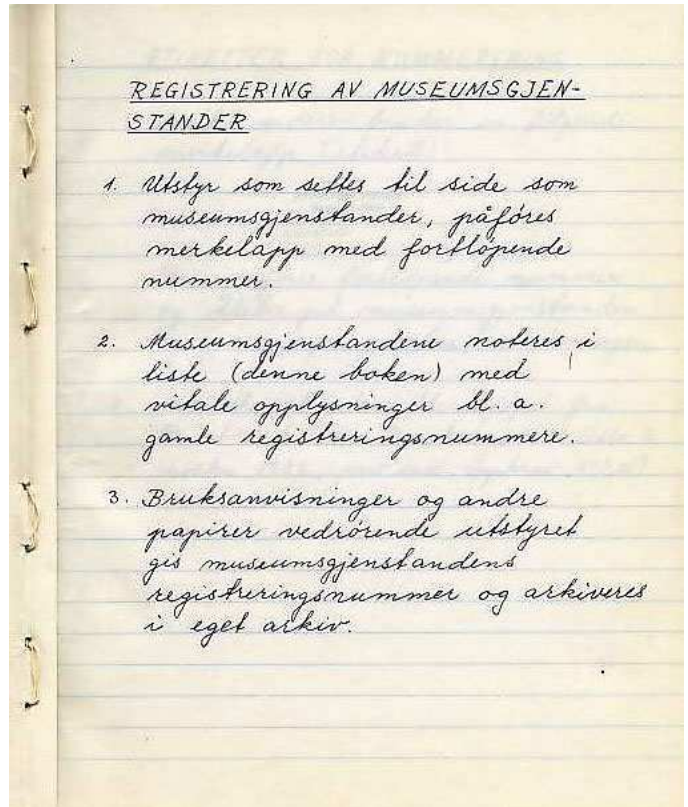 REGISTRERING AV MUSEUMSGJEN-
STANDER
1. Utstyr som settes til side som
museumsgjenstander, påføres
merkelapp med fortløpende
nummer.
2. Museumsgjenstandene noteres i
liste (denne boken) med
vitale opplysninger bl. a.
gamle registreringsnummere.
3. Bruksanvisninger og andre
papirer vedrørende utstyret
gis museumsgjenstandens
registreringsnummer og arkiveres
i eget arkiv.